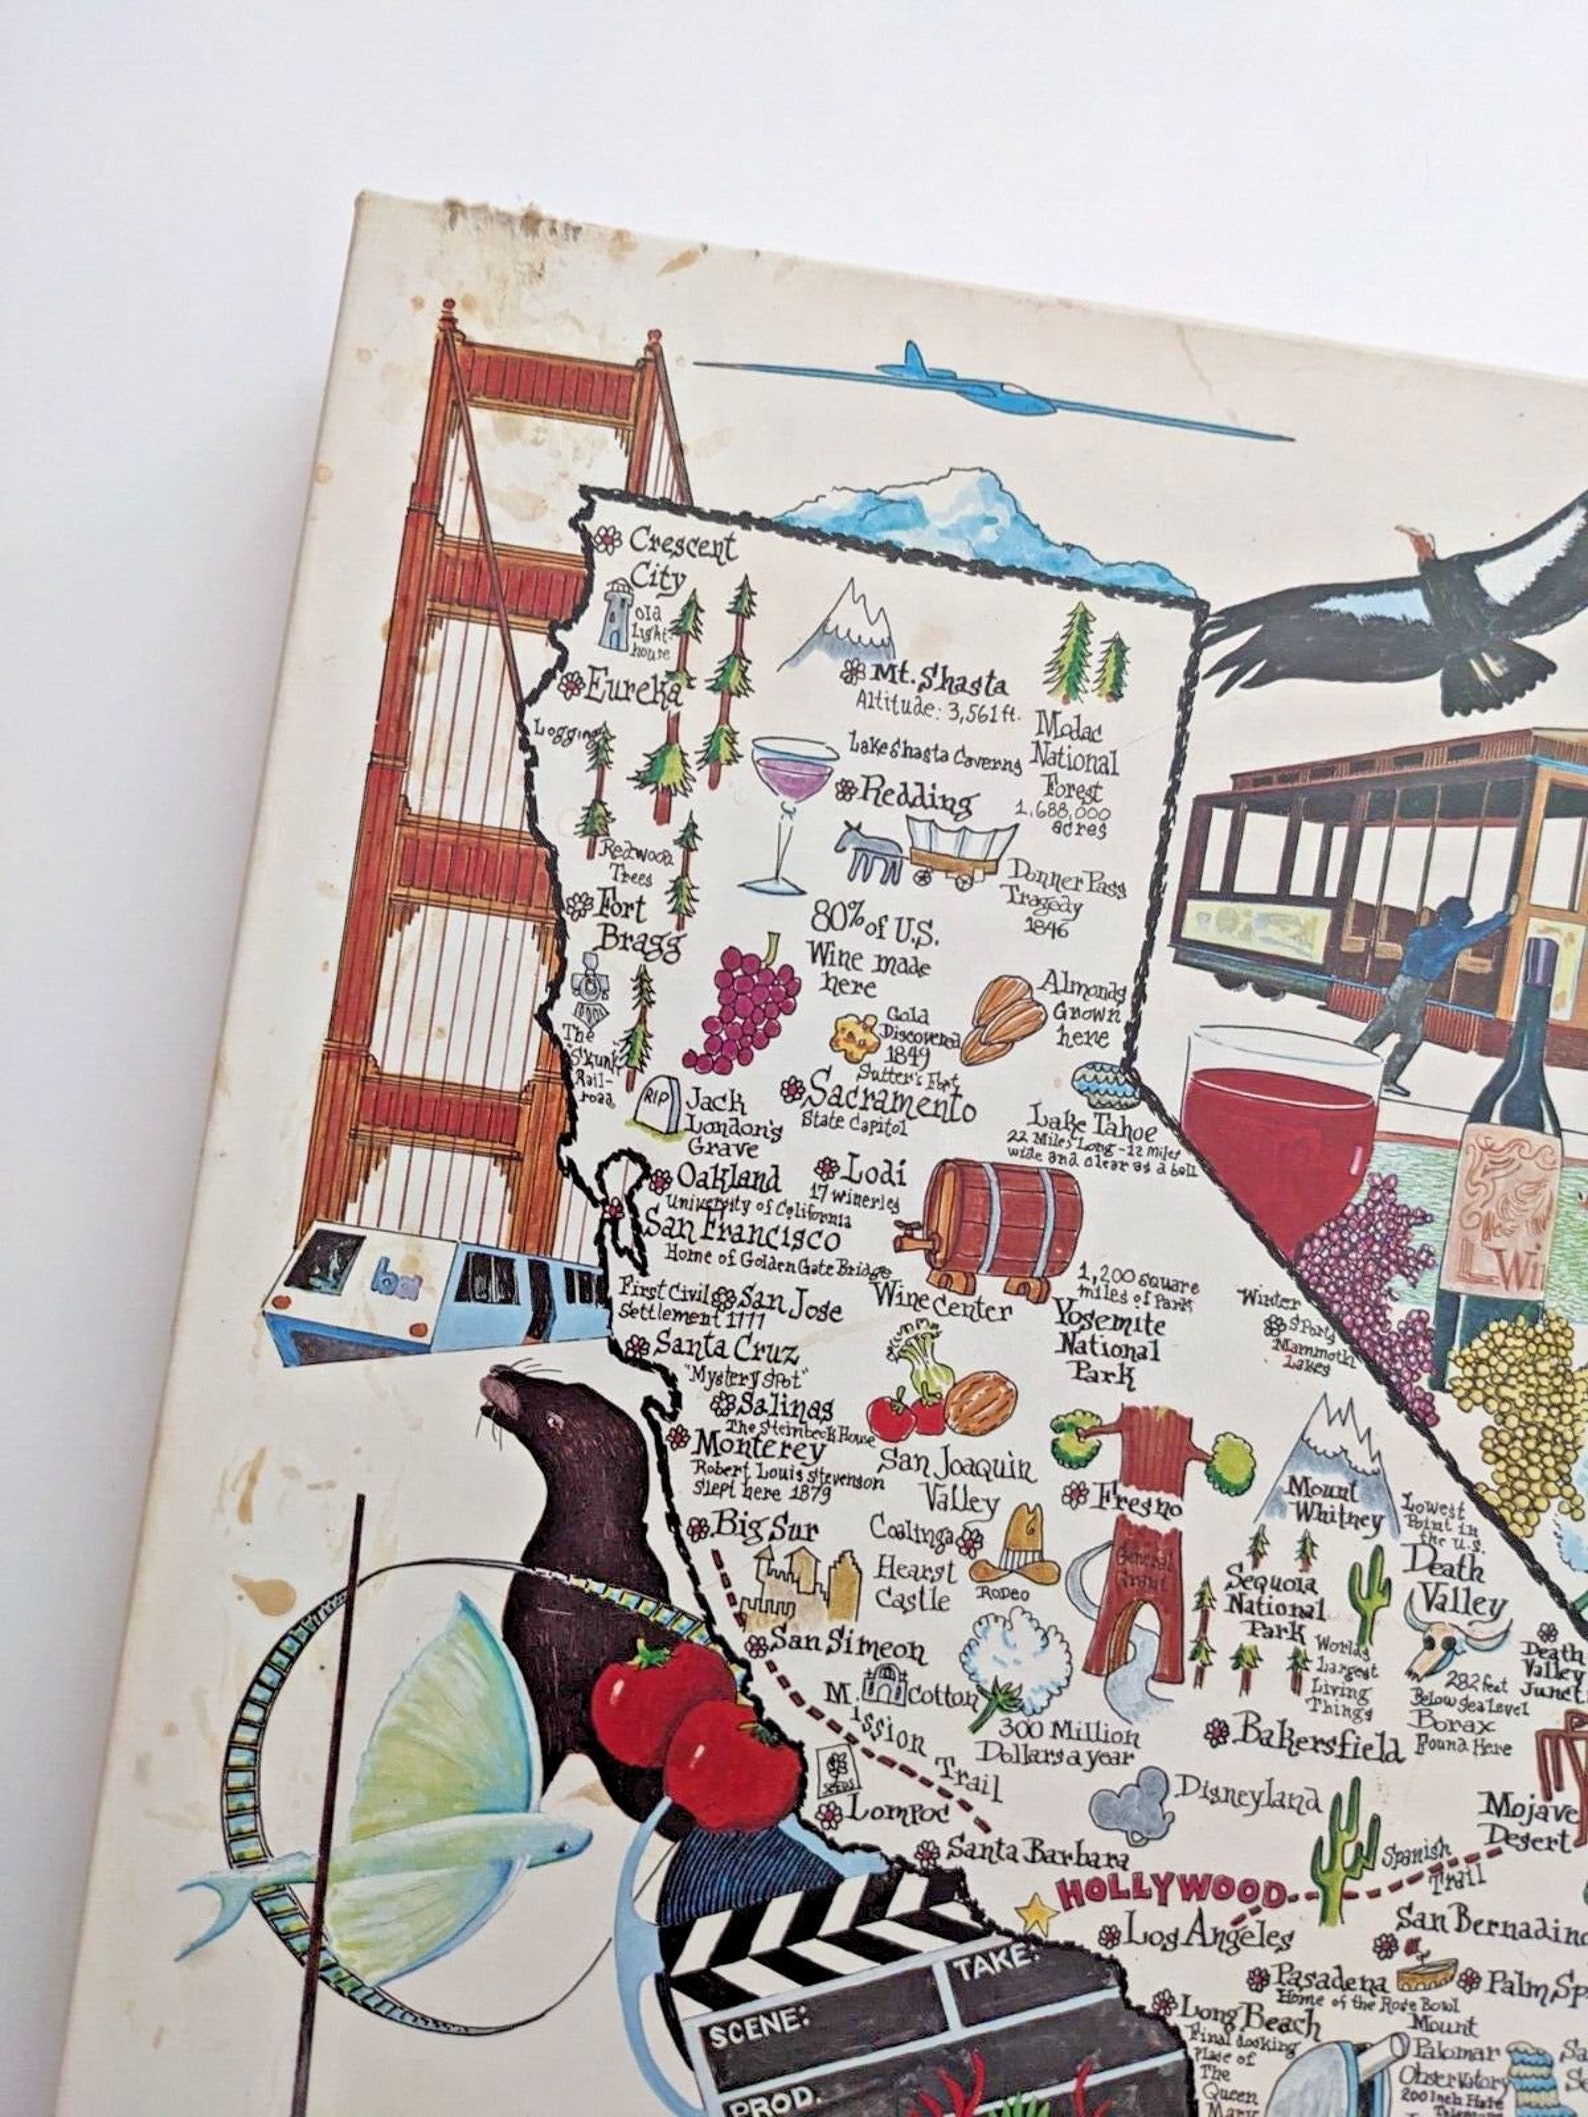 Crescent
City
old
Light-
house
Eureka
Logging
Mt. Shasta
Altitude: 3,561 ft.
Modac
National
Forest
1,688,000
acres
Lake Shasta Caverns
Redding
Redwood
Trees
Donner Pass
Tragedy
1846
Fort
Bragg
80% of U.S.
Wine made
here
Almonds
Grown
here
Gold
Discovered
1849
Sutter's Fort
The
"Skunk"
Rail-
road
RIP
Jack
London's
Grave
Sacramento
State Capitol
Lake Tahoe
22 Miles Long - 12 miles
wide and clear as a bell
Oakland
University of California
Lodi
17 wineries
San Francisco
Home of Golden Gate Bridge
Wine Center
1,200 square
miles of Park
Yosemite
National
Park
Winter
Sports
Mammoth
Lakes
ba
First Civil
Settlement 1777
San Jose
Santa Cruz
"Mystery Spot"
Salinas
The Steinbeck House
Monterey
Robert Louis Stevenson
slept here 1879
San Joaquin
Valley
Fresno
Mount
Whitney
Lowest
Point in
the U.S.
Death
Valley
282 feet
Below Sea Level
Borax
Found Here
Death
Valley
Junct
Big Sur
Coalinga
Rodeo
Hearst
Castle
General
Grant
Sequoia
National
Park
Worlds
Largest
Living
Things
San Simeon
Mission
Trail
cotton
300 Million
Dollars a year
Bakersfield
SEEDS
Lompoc
Disneyland
Mojave
Desert
Santa Barbara
Spanish
Trail
HOLLYWOOD
Los Angeles
San Bernadino
Pasadena
Home of the Rose Bowl
Palm Sp
Long Beach
Final docking
Place of
The
Queen
Mary
Mount
Palomar
Observatory
200 inch
Sa
TAKE:
SCENE:
PROD.
Wi